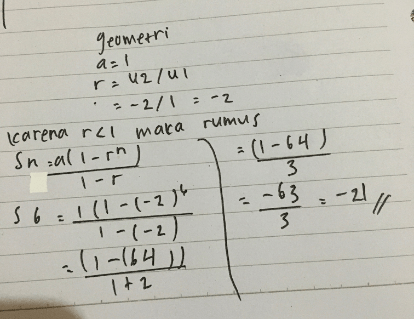 geometri
a=1
r = u2/u1
= -2/1 = -2
karena r<1 maka rumus
Sn = a(1-rⁿ)
1-r
S6 = 1(1-(-2)⁶
1-(-2)
= (1-(64))
1+2
= (1-64)
3
= -63 = -21 //
3